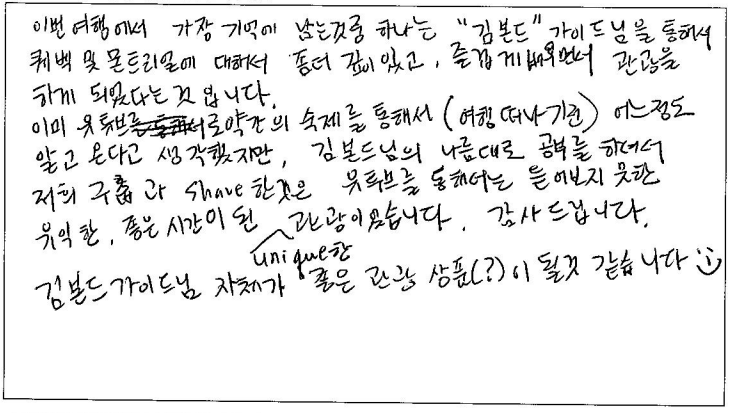 이번 여행에서 가장 기억에 남는것중 하나는 "김본드" 가이드님을 통해서
퀘백 및 몬트리얼에 대해서 좀더 깊이있고, 즐겁게 배우면서 관광을
하게 되었다는 것 입니다.
이미 유튜브로 약간의 숙제를 통해서 (여행 떠나기전) 어느정도
알고 온다고 생각했지만, 김본드님의 나름대로 공부를 하셔서
저희 구룹과 share 한것은 유튜브를 통해서는 들어보지 못한
유익한, 좋은 시간이 된 unique한 관광이었습니다. 감사드립니다.
김본드 가이드님 자체가 좋은 관광 상품(?)이 될것 같습니다